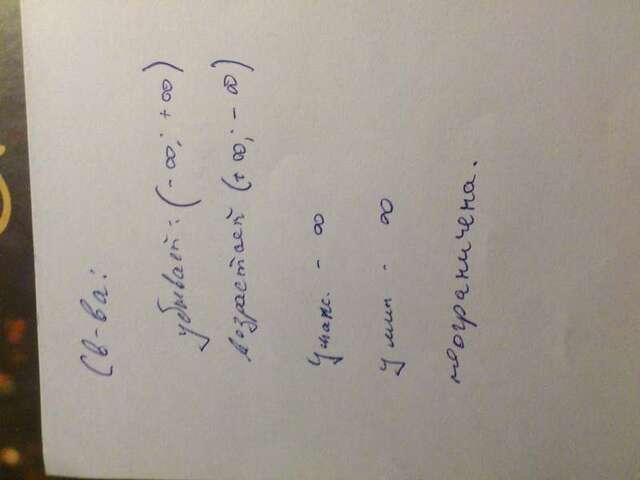 Св-ва:
убывает: (-∞; +∞)
возрастает (+∞; -∞)
y макс. - ∞
y мин - ∞
неограничена.